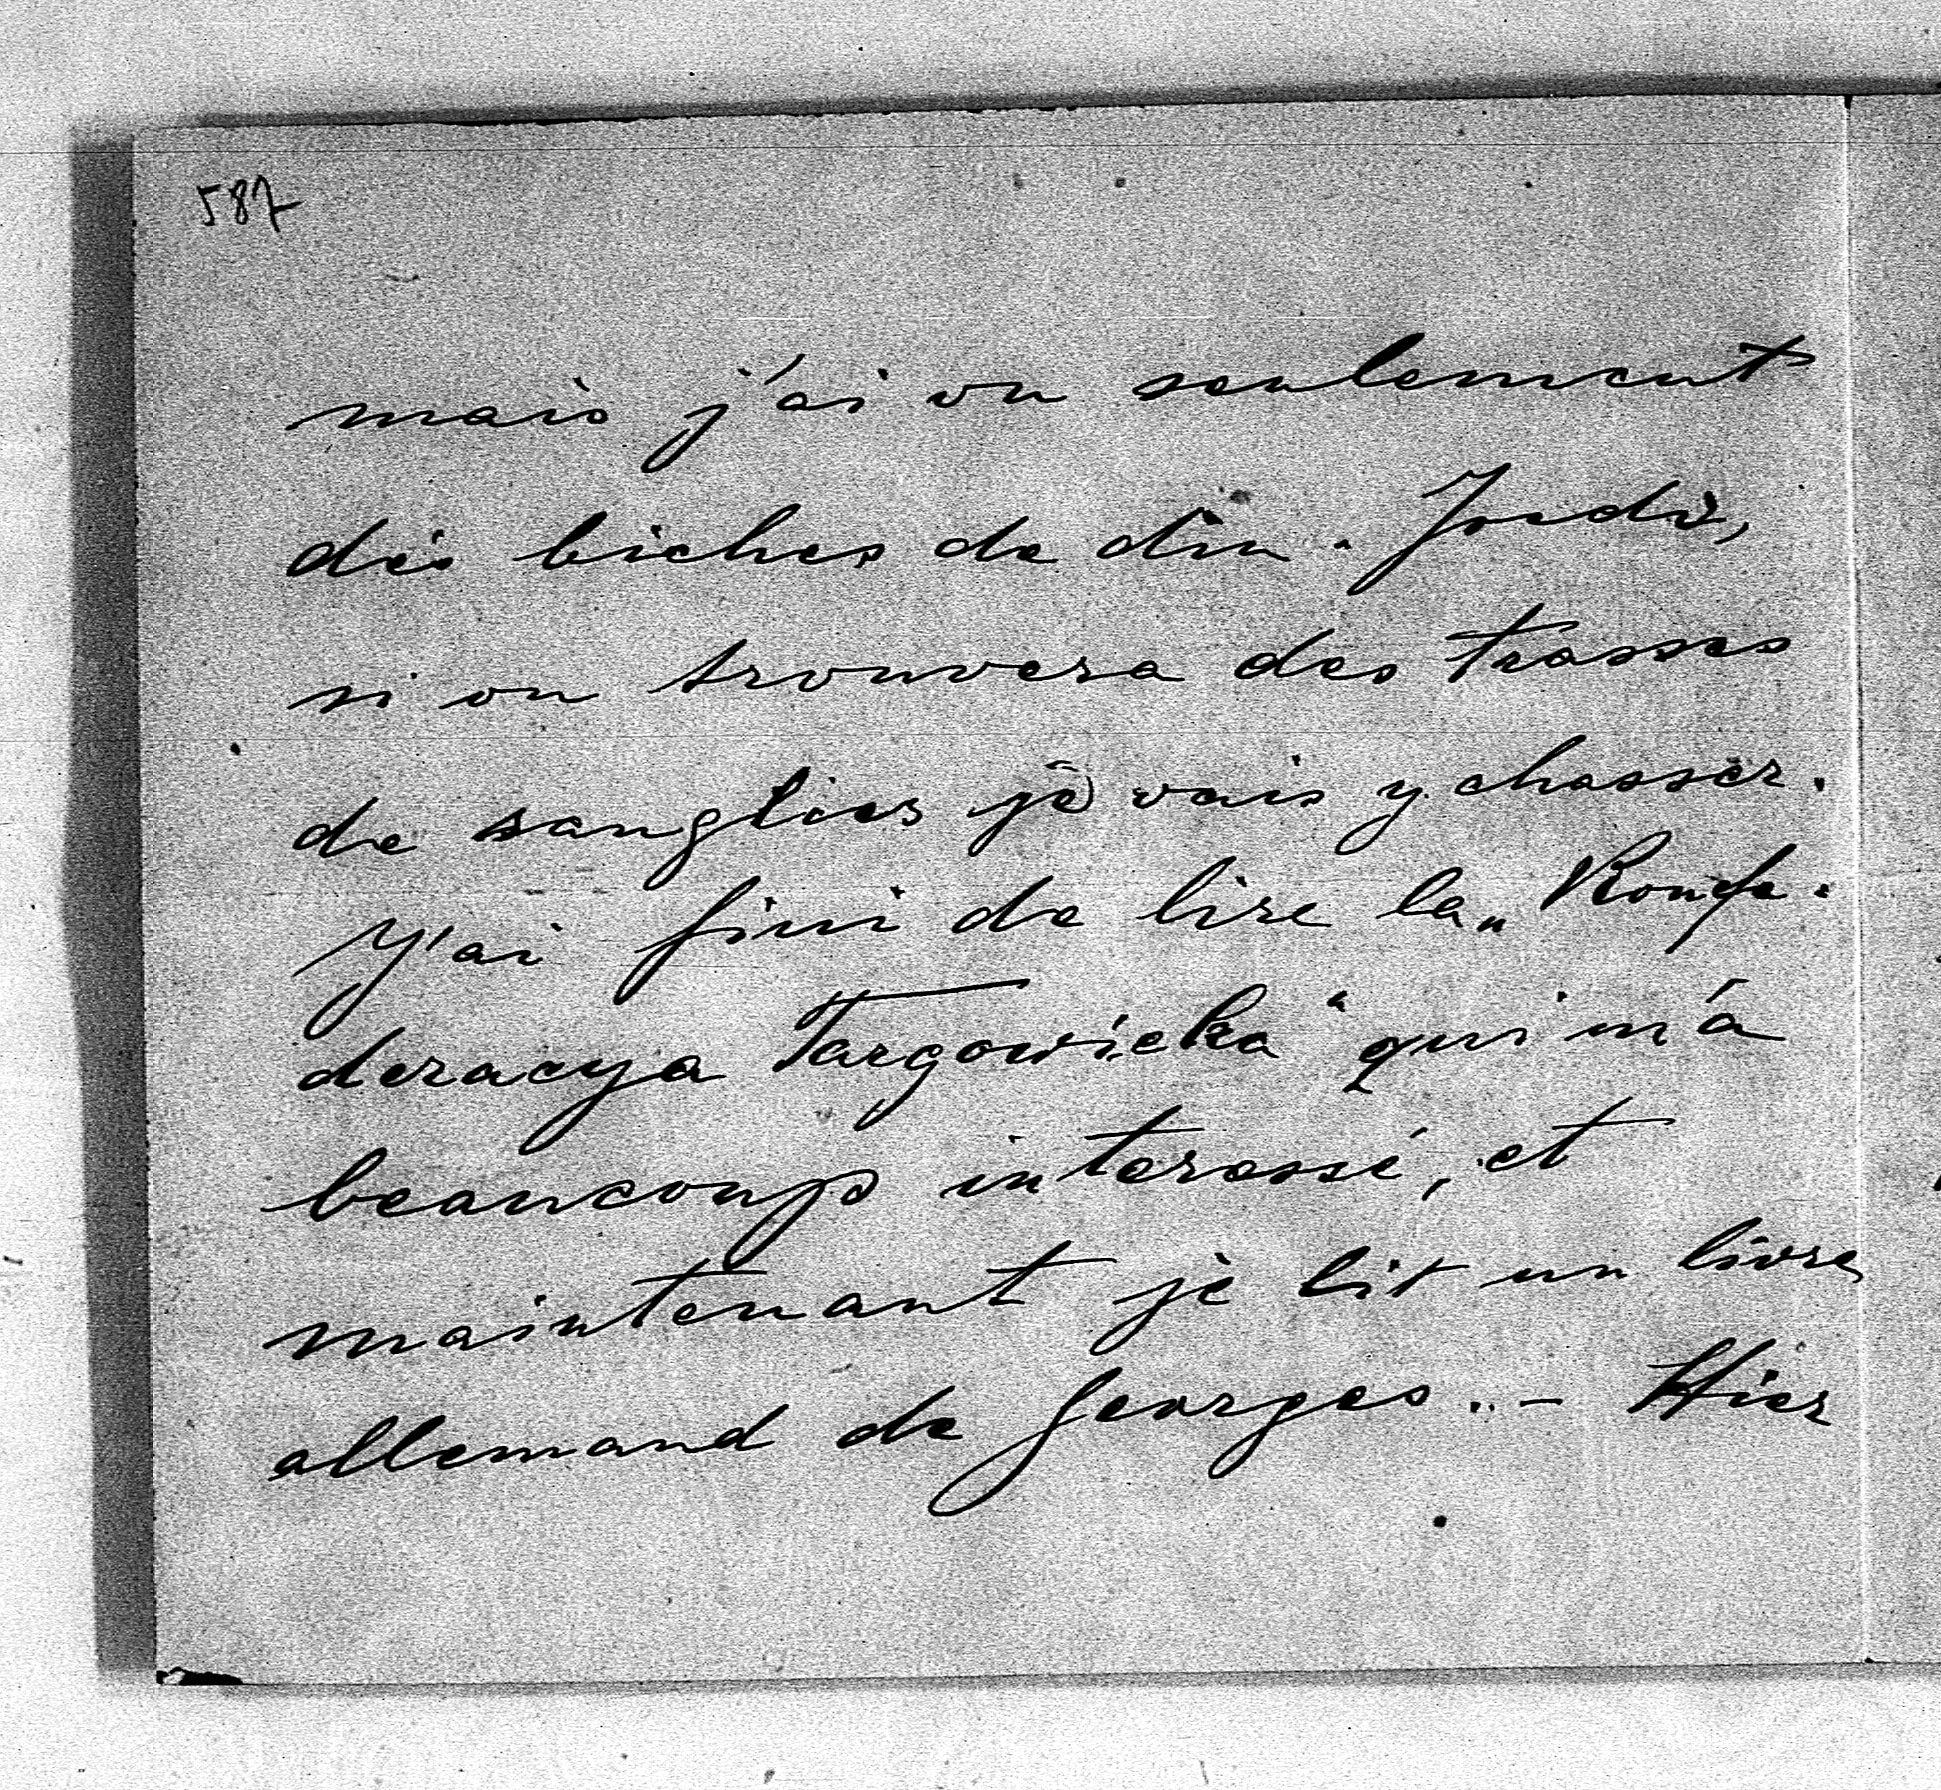 587
mais j'ai vu seulement
des biches de din. Jeudi,
si on trouvera des trasses
de sanglier je vais y chasser.
J'ai fini de lire la „Konfe-
deracya Targowicka" qui m'a
beaucoup interessé, et
maintenant je lit un livre
allemand de Georges.. - Hier